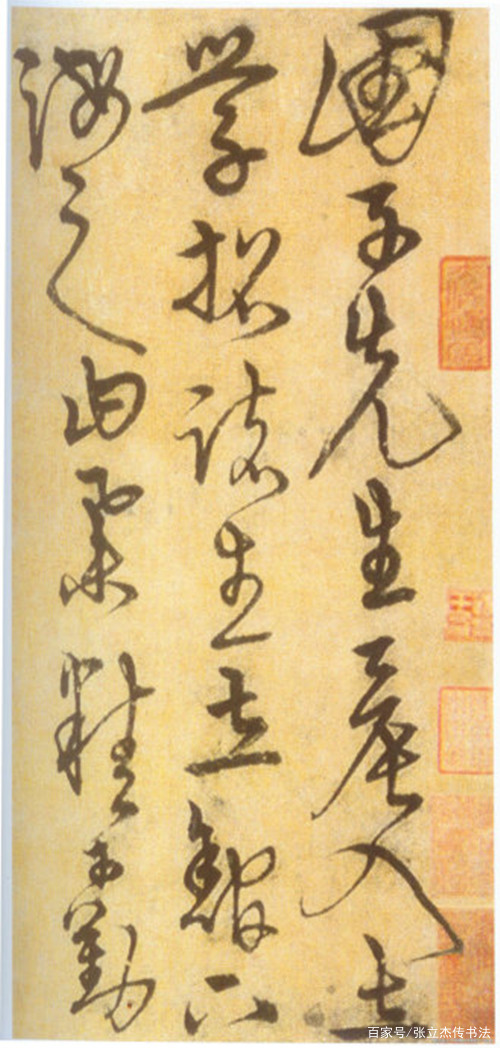 國子先生晨入太
學招諸生立館下
誨之曰業精于勤
百家号/张立杰传书法